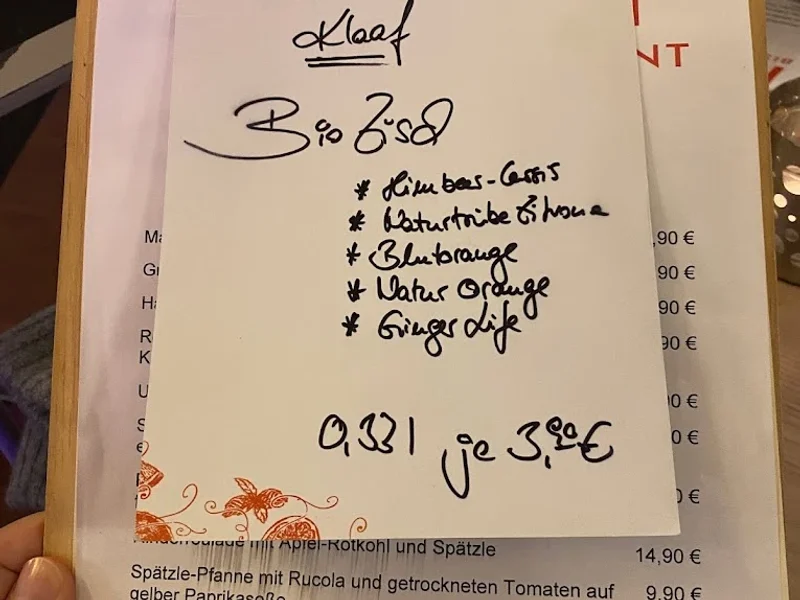 Klaaf
NT
Bio Zisch
* Himbeer-Cassis
* Naturtrübe Zitrone
* Blutorange
* Natur Orange
* Ginger Life
0,33l je 3,90€
Ma
,90 €
G
90 €
Ha
90 €
R
K
90 €
U
0 €
S
0 €
0 €
mit Apfel-Rotkohl und Spätzle
14,90 €
Spätzle-Pfanne mit Rucola und getrockneten Tomaten auf
9,90 €
gelber Paprikasoße